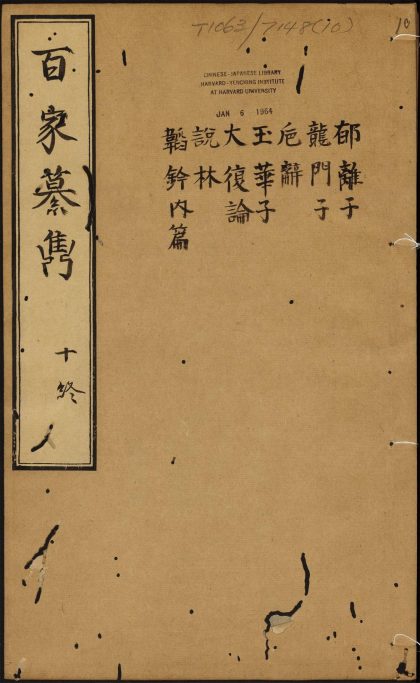 T1063/7148(10)
10
CHINESE-JAPANESE LIBRARY
HARVARD-YENCHING INSTITUTE
AT HARVARD UNIVERSITY
JAN 6 1964
郁離子
龍門子
卮辭
玉華子
大復論
說林
韜鈐內篇
百家纂雋
十終